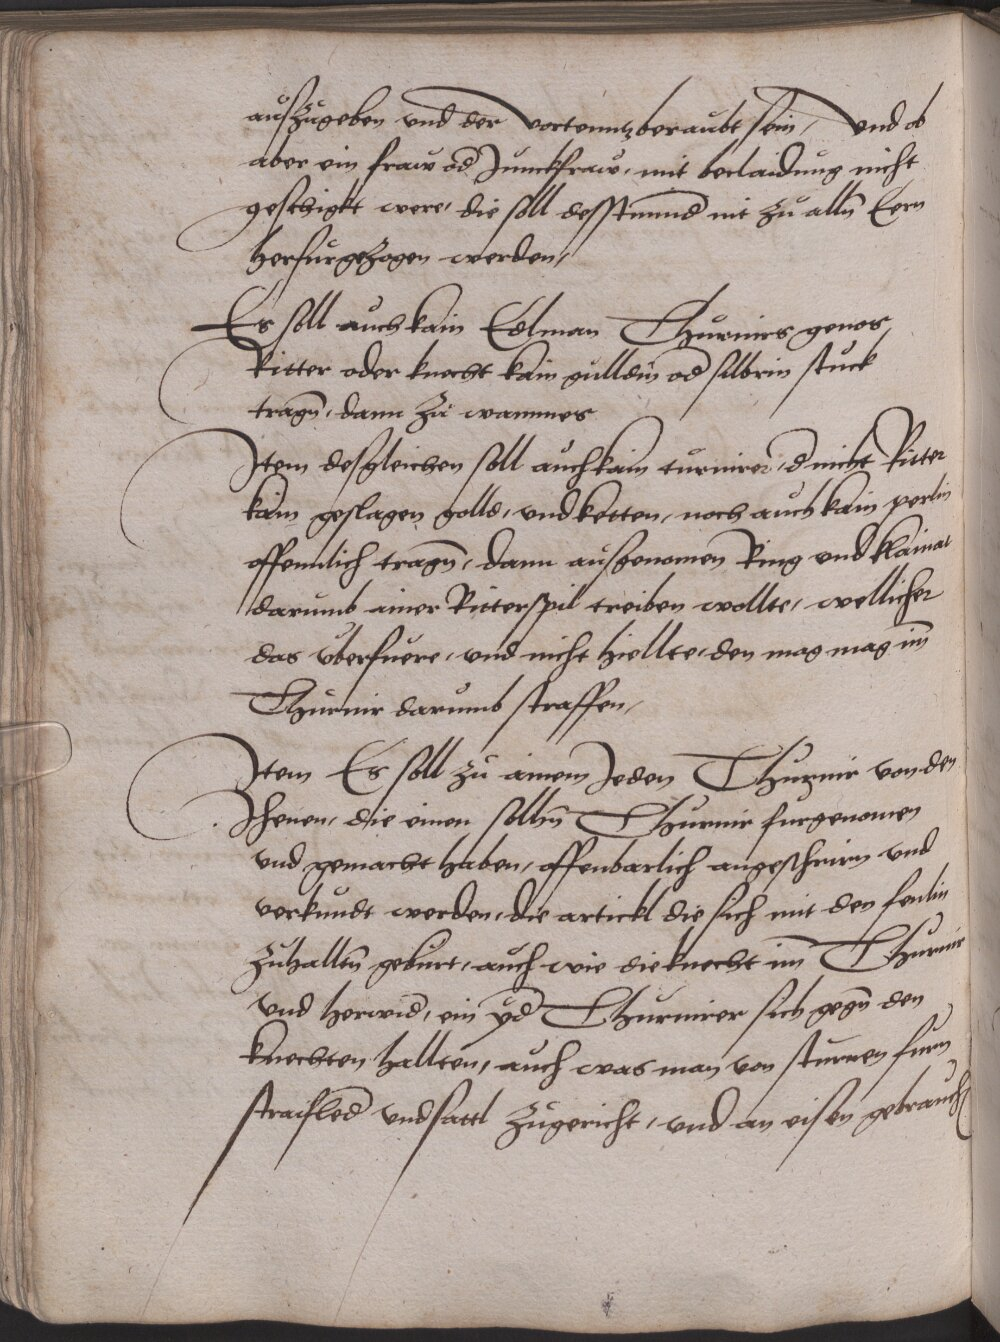 auszugeben und der vortenntz beraubt sein, Und ob
aber ein fraw od Junckfraw, mit beclaidung nicht
geschigkt were, die soll desstmind nit zu alln Eern
herfurgezogen werden,
Es soll auch kain Edlman Thurnirs genos,
Ritter oder knecht kain gulldin od silbrin stuck
tragn, dann zu wammes
Item desgleichen soll auch kain turnirer, d nicht Ritter
kain geslagen golld, und ketten, noch auch kain perlin
offennlich tragn, dann ausgenomen Ring und klainat
darumb ainer Ritterspil treiben wollte, wellicher
das uberfuere, und nicht hiellte, den mag mag im
Thurnir darumb straffen,
Item Es soll zu ainem Jeden Thurnir von den
Jhenen, die einen solhn Thurnir furgenomen
und gemacht haben, offenbarlich angeschrirn und
verkundt werden, die artickl die sich mit den fenlin
zuhalltn geburt, auch wie die knecht im Thurnir
und herwid, ein yd Thurnirer sich gegn den
knechten hallten, auch was man von sturen furn
straifled und sattl zugericht, und an eisen gebrauch